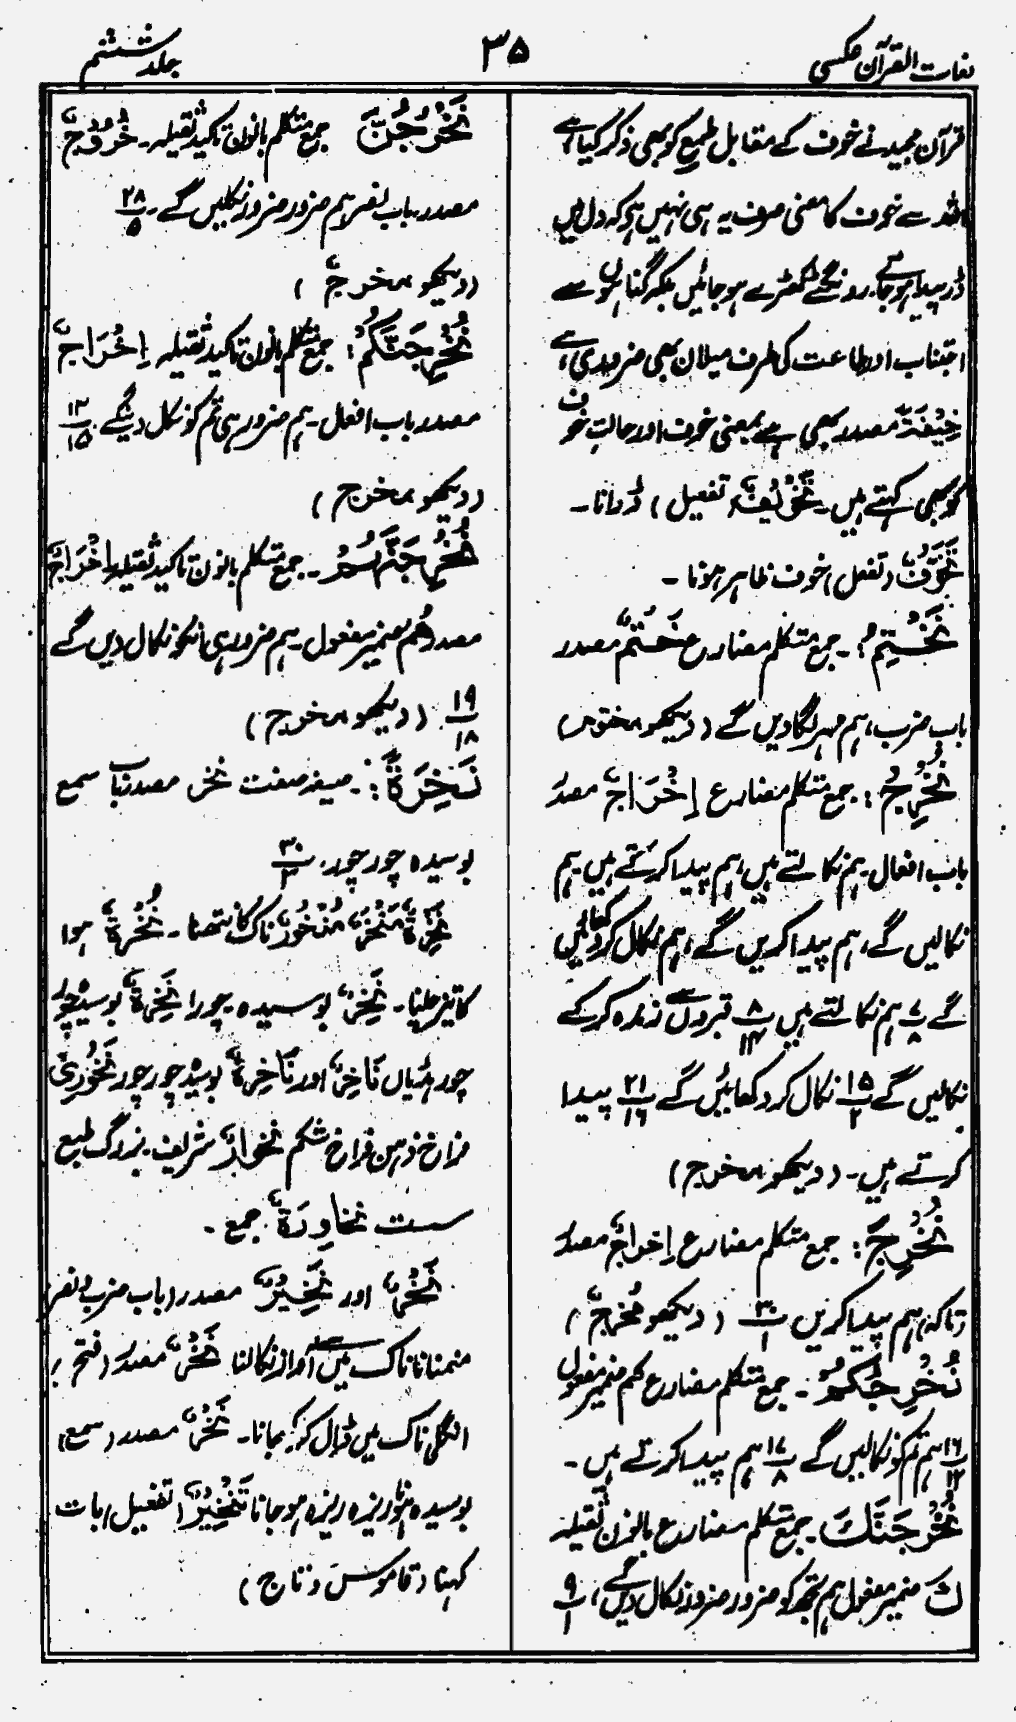 لغات القرآن عکسی
۳۵
جلد ششم
قرآن مجید نے خوف کے مقابل طمع کو بھی ذکر کیا ہے
اللہ سے خوف کا معنی صرف یہ ہی نہیں ہے کہ دل میں
ڈر پیدا ہو جائے۔ رونگٹے کھڑے ہو جائیں بلکہ گناہوں سے
اجتناب اور طاعت کی طرف میلان بھی ضروری ہے،
خِیْفَۃٌ مصدر بھی ہے بمعنی خوف اور حالتِ خوف
کو بھی کہتے ہیں۔ تَخْوِیْفٌ (تفعیل) ڈرانا۔
تَخَوُّفٌ (تفعل) خوف ظاہر ہونا۔
نَخْتِمُ:۔ جمع متکلم مضارع خَتْمٌ مصدر
باب ضرب، ہم مہر لگا دیں گے (دیکھو مختوم)
نُخْرِجُ: جمع متکلم مضارع اِخْرَاجٌ مصدر
باب افعال۔ ہم نکالتے ہیں، ہم پیدا کرتے ہیں ہم
نکالیں گے، ہم پیدا کریں گے، ہم نکال کر دکھائیں
گے ۷/۸ ہم نکالتے ہیں ۸/۱۴ قبروں سے زندہ کر کے
نکالیں گے ۱۵/۲ نکال کر دکھائیں گے ۲۱/۱۶ پیدا
کرتے ہیں۔ (دیکھو مخرج)
نُخْرِجَ: جمع متکلم مضارع اِخراجٌ مصدر
(تاکہ) ہم پیدا کریں ۳۰/۱ (دیکھو مُخرجٌ)
نُخْرِجُکُمْ۔ جمع متکلم مضارع کم ضمیر مفعول
۱۶/۱۲ ہم تم کو نکالیں گے ۱۷/۸ ہم پیدا کرتے ہیں۔
نُخْرِجَنَّكَ۔ جمع متکلم مضارع بانون ثقیلہ
كَ ضمیر مفعول ہم تجھ کو ضرور ضرور نکال دیں گے، ۹/۱
نَخْرُجَنَّ جمع متکلم بانون تاکید ثقیلہ۔ خُرُوْجٌ
مصدر باب نصر ہم ضرور ضرور نکلیں گے۔ ۲۸/۵
(دیکھو مخرجٌ)
نُخْرِجَنَّکُمْ: جمع متکلم بانون تاکید ثقیلہ اِخْرَاجٌ
مصدر باب افعل۔ ہم ضرور ہی تم کو نکال دیں گے ۱۳/۱۵
(دیکھو مخرج)
نُخْرِجَنَّهُمْ۔ جمع متکلم بانون تاکید ثقیلہ اِخْرَاجٌ
مصدر ھُم ضمیر مفعول۔ ہم ضرور ہی انکو نکال دیں گے
۱۹/۱۸ (دیکھو مخرج)
نَخِرَةً:۔ صیغہ صفت نخر مصدر باب سمع
بوسیدہ چور چور۔ ۳۰/۳
نُخْرَةٌ ناک کا نتھنا۔ نُخْرَةٌ ہوا
کا تیز چلنا۔ نَخِرٌ بوسیدہ۔ چورا نَخِرَةٌ بوسیدہ چور
چور ہڈیاں نَاخِرٌ اور نَاخِرَةٌ بوسیدہ چور چور نَخُوْرِیٌ
فراخ دہن فراخ شکم نخوارٌ شریف۔ بزرگ طبع
سست نخاوِرَةٌ جمع۔
نَخْرٌ اور نَخِیْرٌ مصدر (باب ضرب و نصر)
منمنانا ناک میں سے آواز نکالنا نَخْرٌ مصدر (فتح)
انگلی ناک میں ڈال کر کھجانا۔ نَخَرٌ مصدر (سمع)
بوسیدہ ہونا ریزہ ریزہ ہو جانا تَنْخِیْرٌ (تفعیل) بات
کہنا (قاموس و تاج)